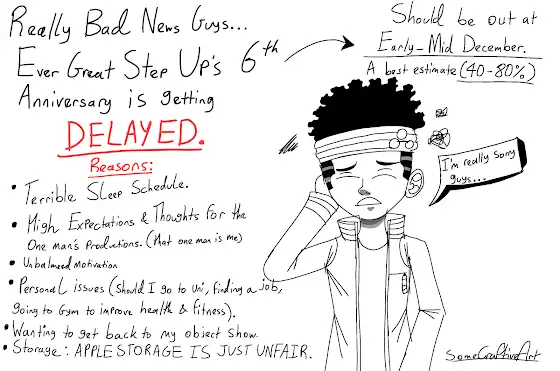 Really Bad News Guys...
Ever Great Step Up's 6th
Anniversary is getting
DELAYED.
Reasons:
• Terrible Sleep Schedule.
• High Expectations & Thoughts for the
One man's Productions. (that one man is me)
• Unbalanced Motivation
• Personal issues (Should I go to Uni, finding a job,
going to Gym to improve health & fitness).
• Wanting to get back to my object show.
• Storage: APPLE STORAGE IS JUST UNFAIR.
Should be out at
Early-Mid December.
A best estimate (40-80%)
I'm really sorry
guys...
SomeCraftiveArt